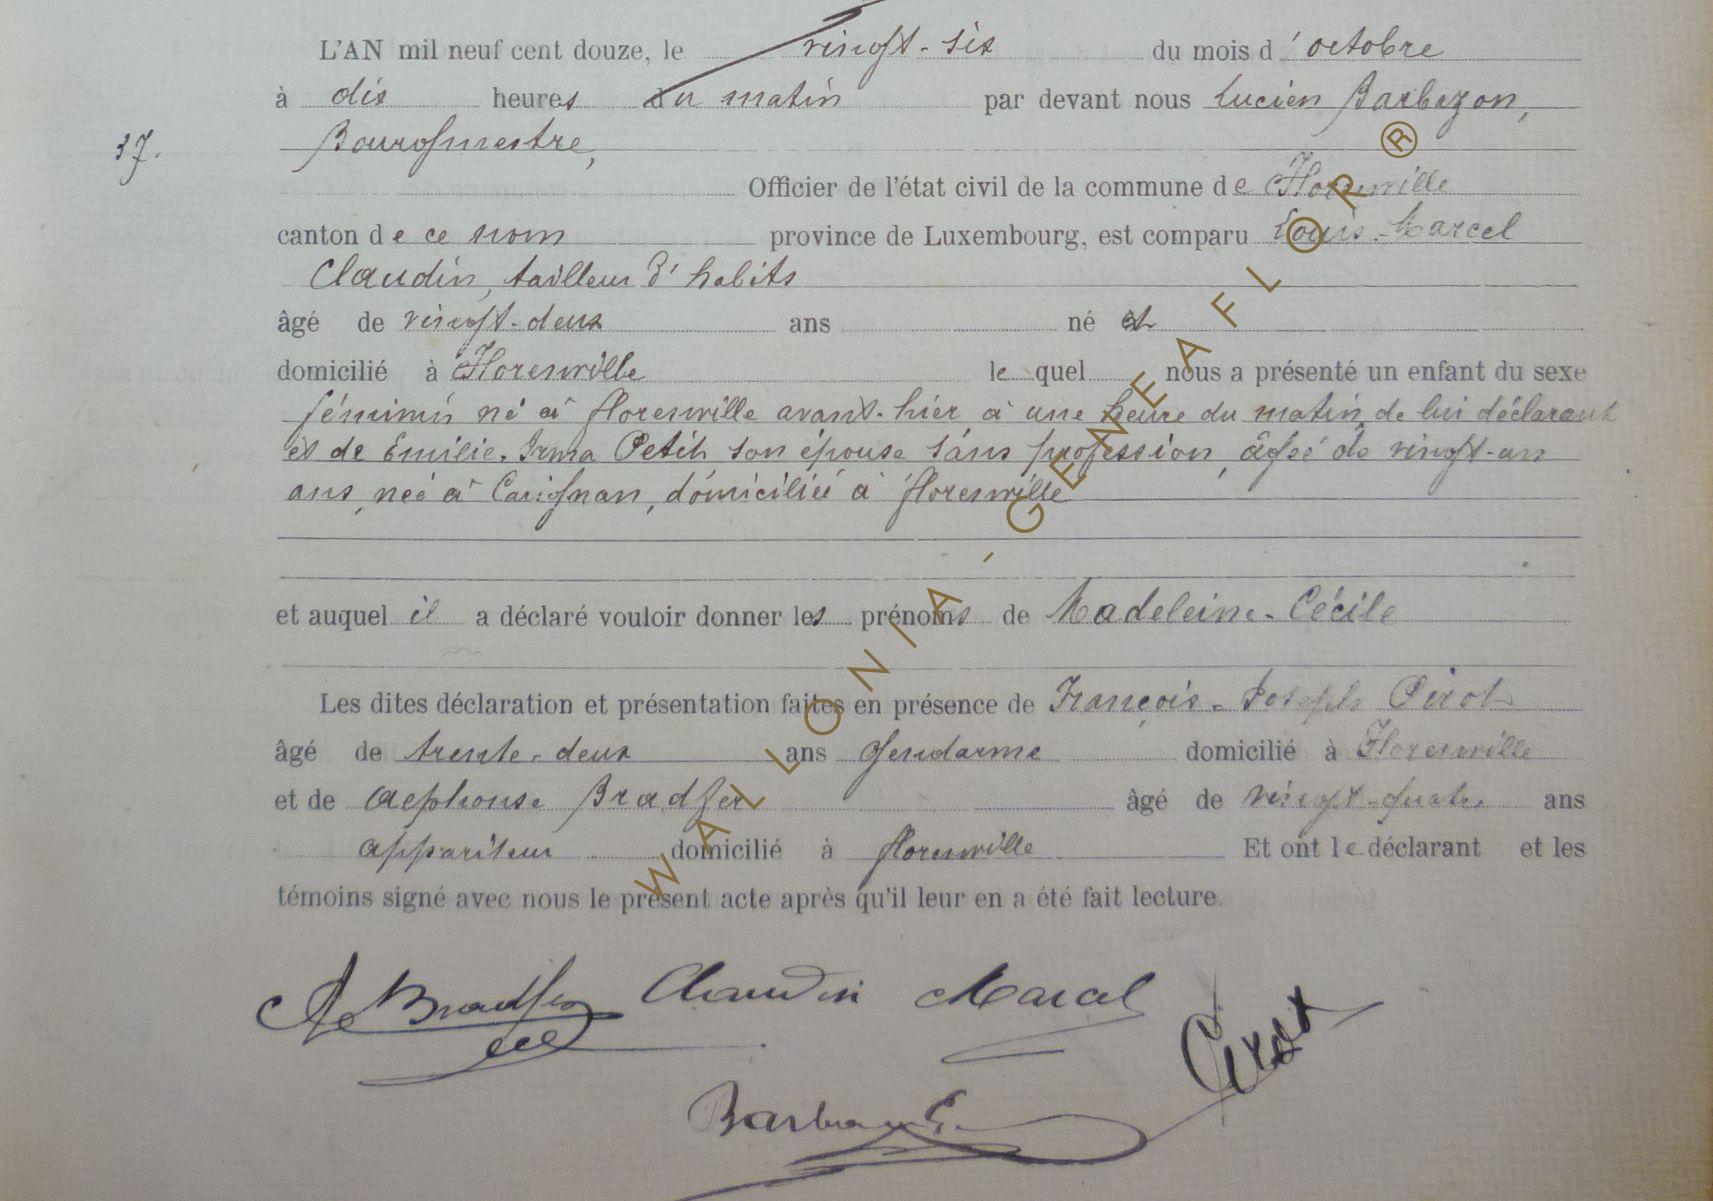 L'AN mil neuf cent douze, le vingt-six du mois d'octobre
à dix heures du matin par devant nous Lucien Barbezon,
37.
Bourgmestre,
Officier de l'état civil de la commune de Florenville
canton de ce nom province de Luxembourg, est comparu Louis-Marcel
Claudin, tailleur d'habits
âgé de vingt-deux ans né et
domicilié à Florenville le quel nous a présenté un enfant du sexe
féminin né à Florenville avant-hier à une heure du matin, de lui déclarant
et de Emilie-Irma Petit son épouse sans profession, âgée de vingt-un
ans, née à Carignan, domiciliée à Florenville
et auquel il a déclaré vouloir donner les prénoms de Madeleine-Cécile
Les dites déclaration et présentation faites en présence de François-Joseph Pirot
âgé de trente-deux ans gendarme domicilié à Florenville
et de Alphonse Bradfer âgé de vingt-quatre ans
appariteur domicilié à Florenville Et ont le déclarant et les
témoins signé avec nous le présent acte après qu'il leur en a été fait lecture.
A Bradfer Claudin Marcel
Pirot
WALLONIA-GENEAFLOR ®